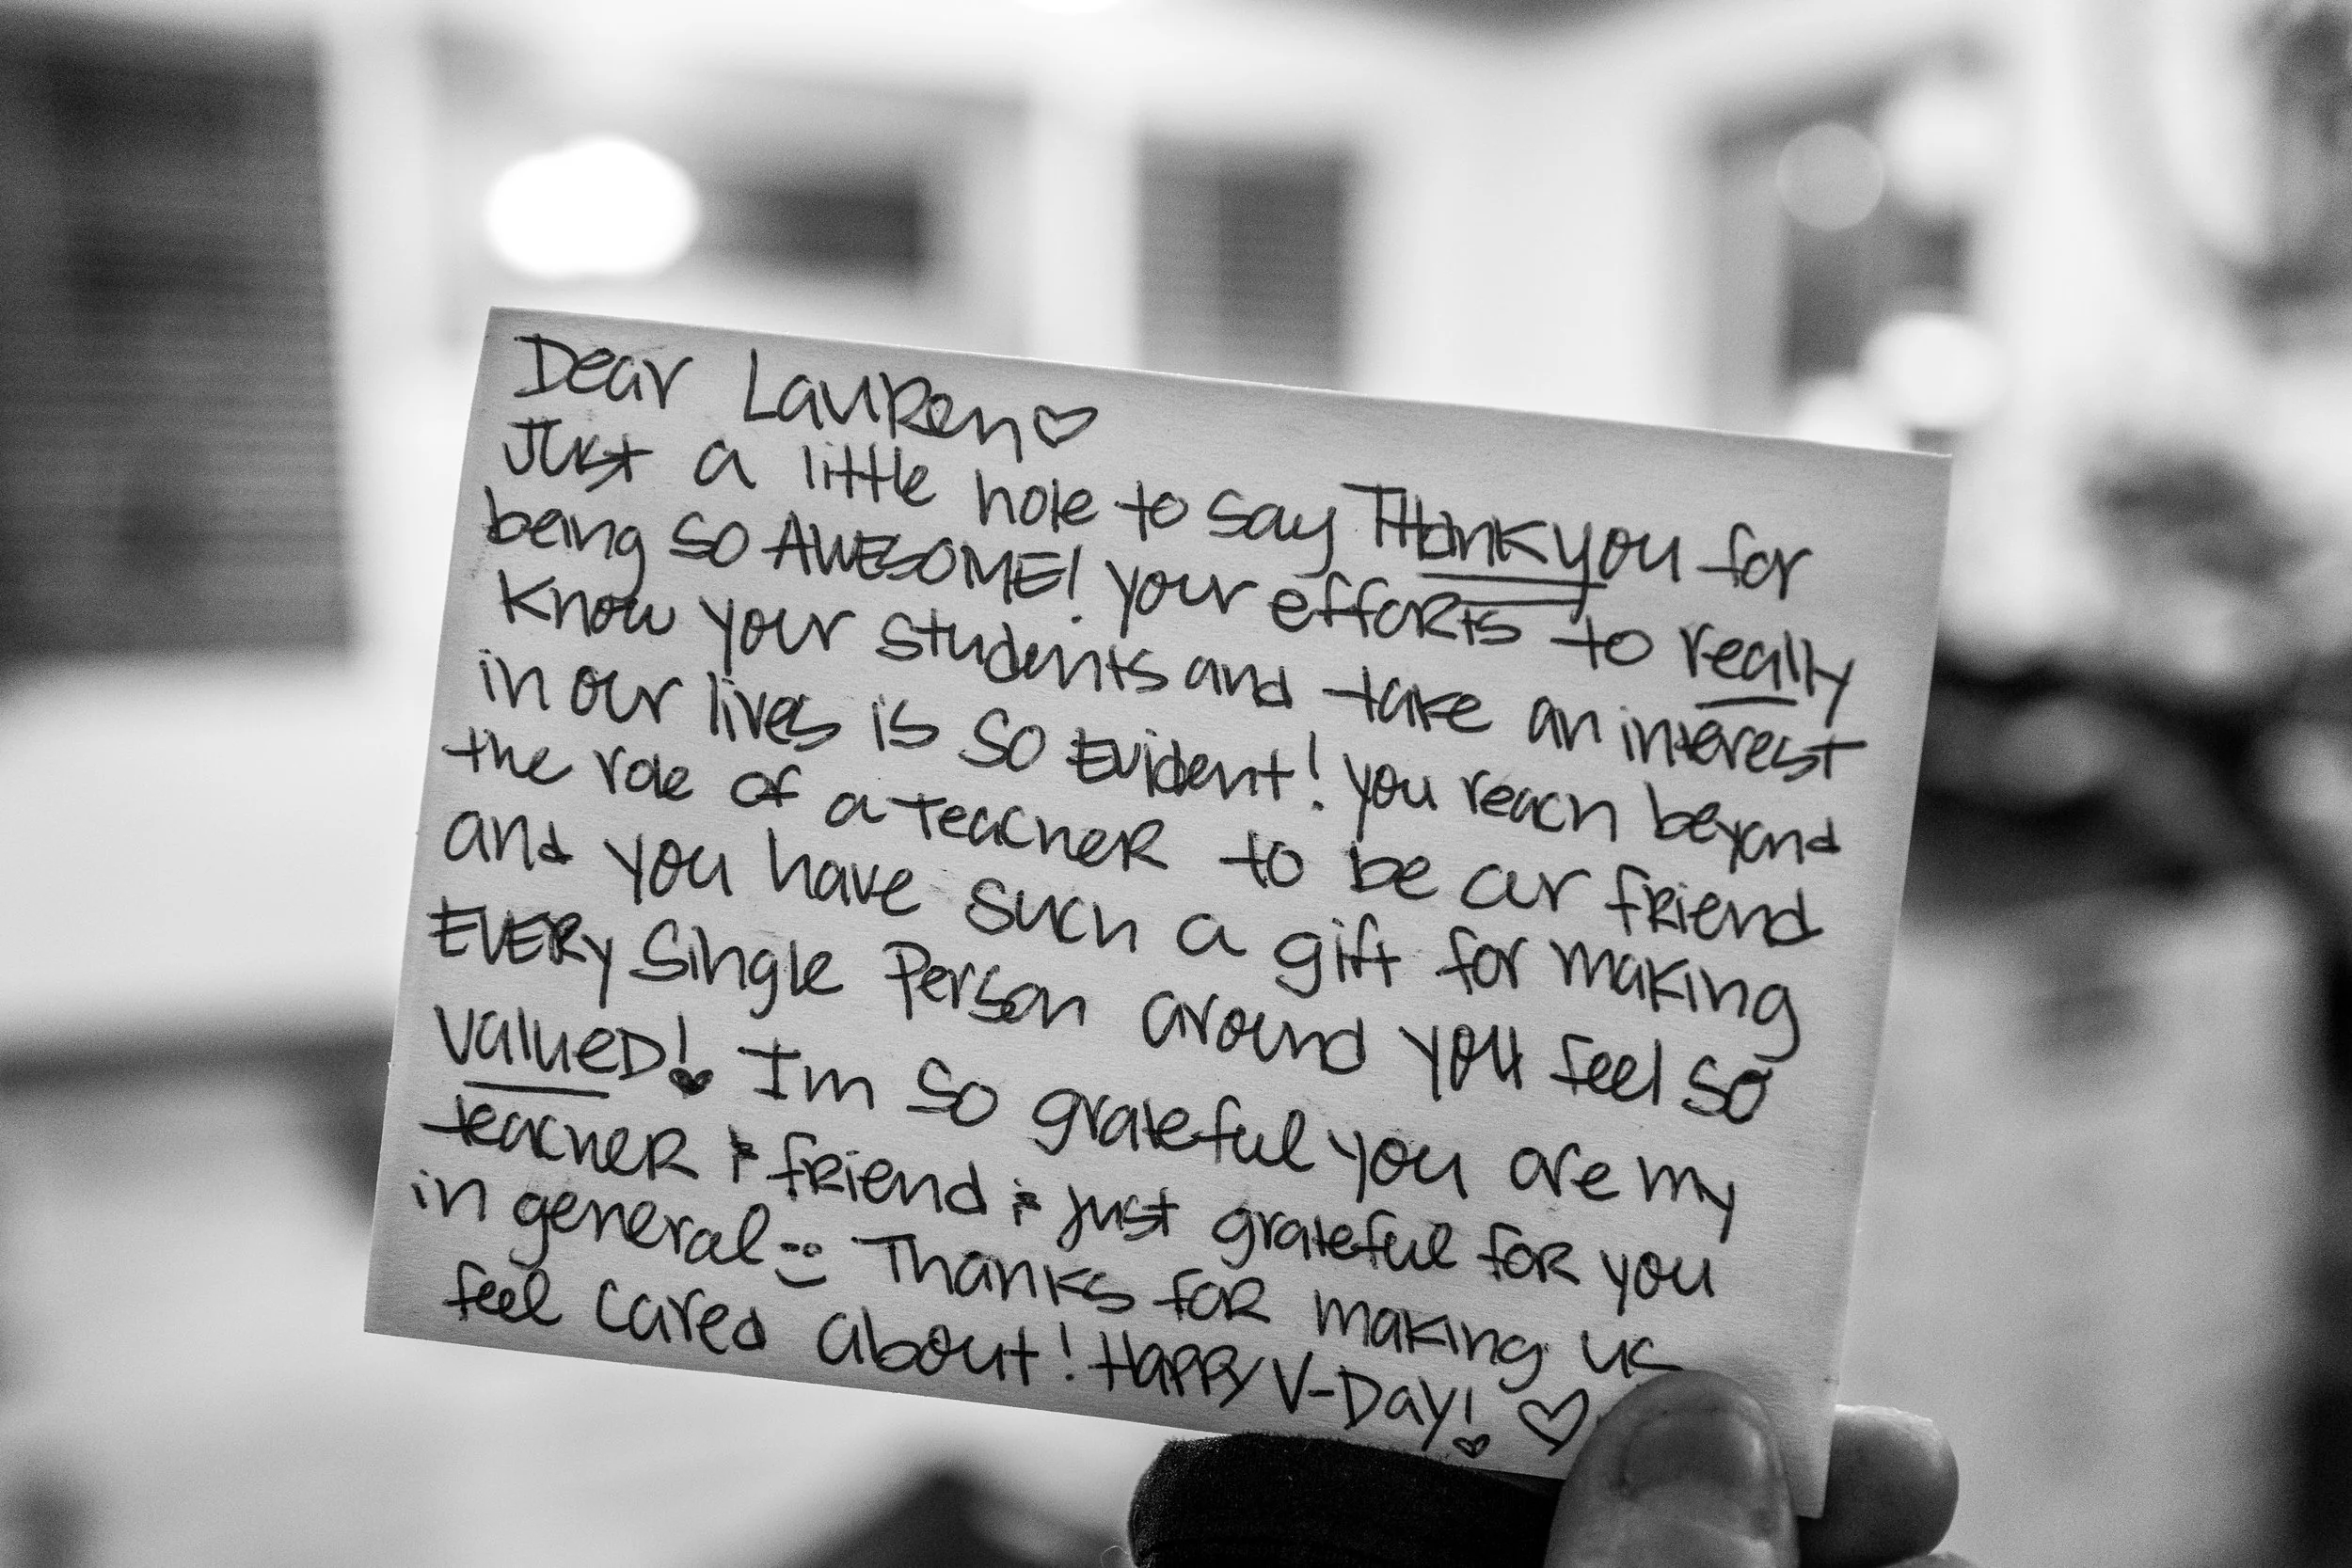 Dear Lauren ♡
Just a little note to say Thank you for
being so AWESOME! your efforts to really
know your students and take an interest
in our lives is so Evident! you reach beyond
the role of a teacher to be our friend
and you have such a gift for making
EVERY single person around you feel so
valued! I'm so grateful you are my
teacher & friend & just grateful for you
in general :) Thanks for making us
feel cared about! Happy V-Day! ♡